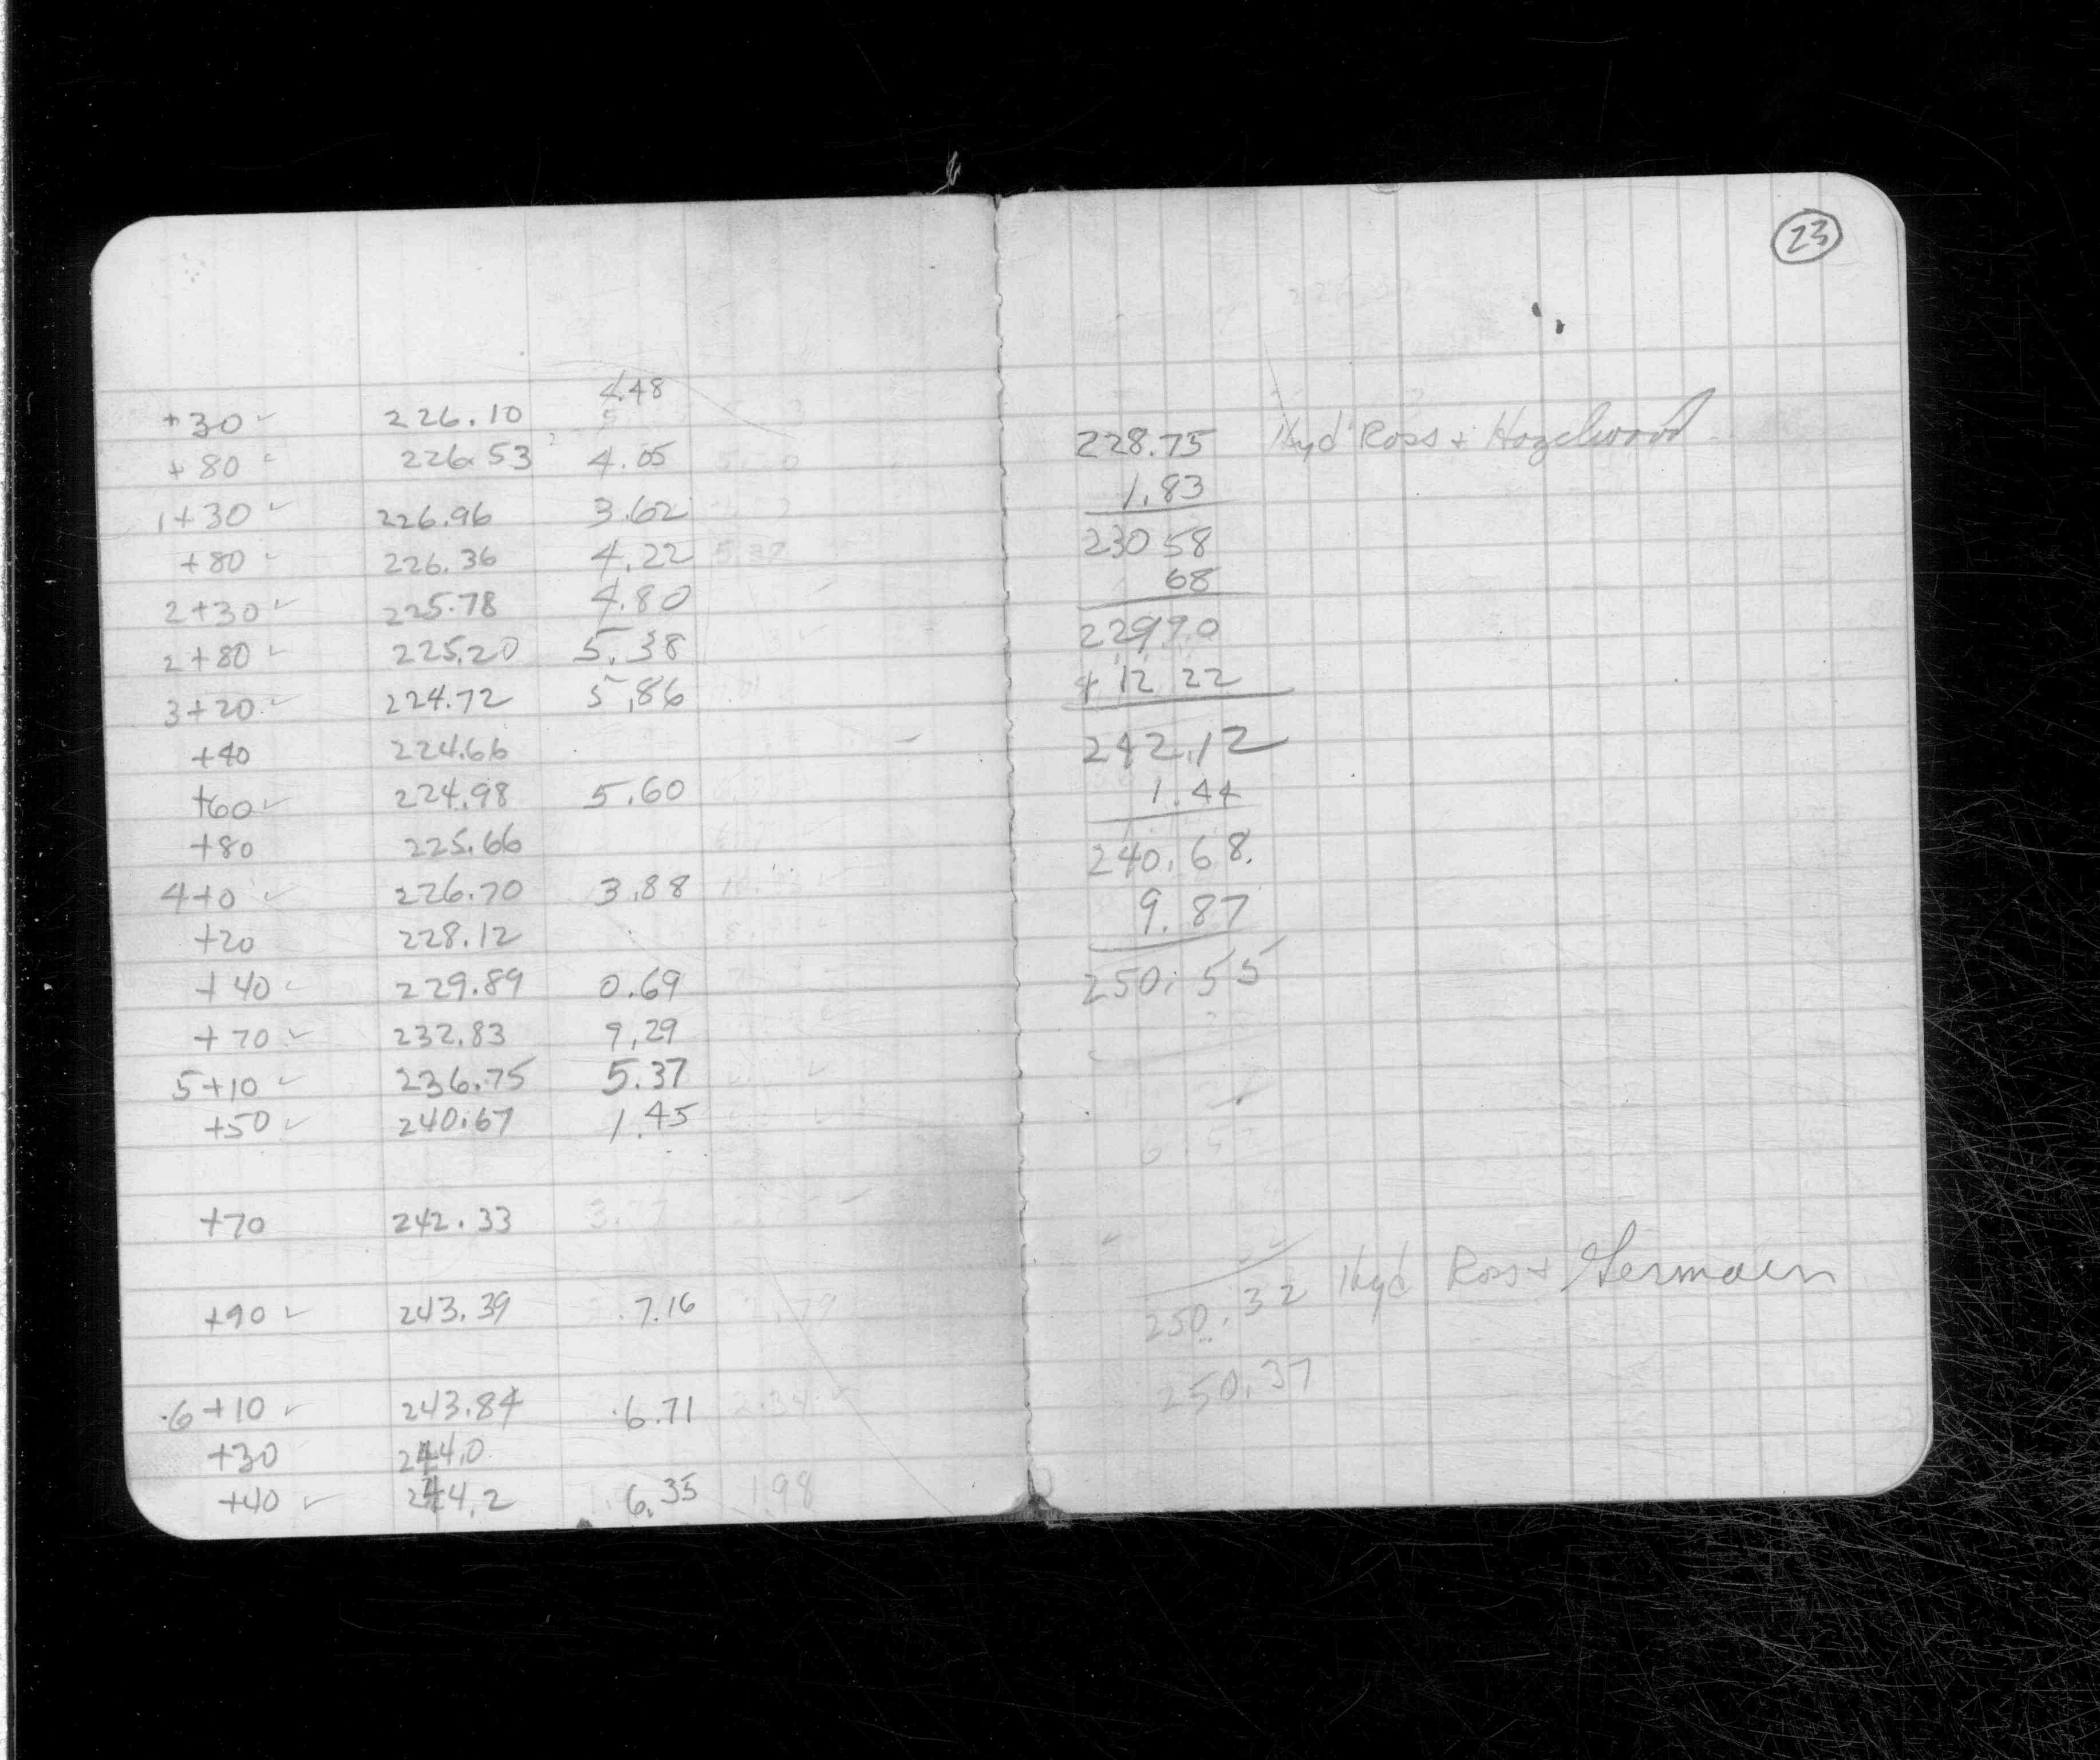 23
4.48
+30 ✓ 226.10
+80 226.53 4.05
1+30 ✓ 226.96 3.62
+80 226.36 4.22 5.37
2+30 ✓ 225.78 4.80
2+80 ✓ 225.20 5.38
3+20 ✓ 224.72 5.86
+40 224.66
+60 ✓ 224.98 5.60
+80 225.66
4+0 ✓ 226.70 3.88
+20 228.12
+40 229.89 0.69
+70 ✓ 232.83 9.29
5+10 ✓ 236.75 5.37
+50 ✓ 240.67 1.45
+70 242.33 3.77
+90 ✓ 243.39 7.16
6+10 ✓ 243.84 6.71 2.34
+30 244.0
+40 ✓ 244.2 6.35 1.98
228.75 Hyd Ross + Hazelwood
1.83
230 58
68
229 90
+ 12 22
242.12
1.44
240.68.
9.87
250.55
250.32 Hyd Ross + Germain
250.37